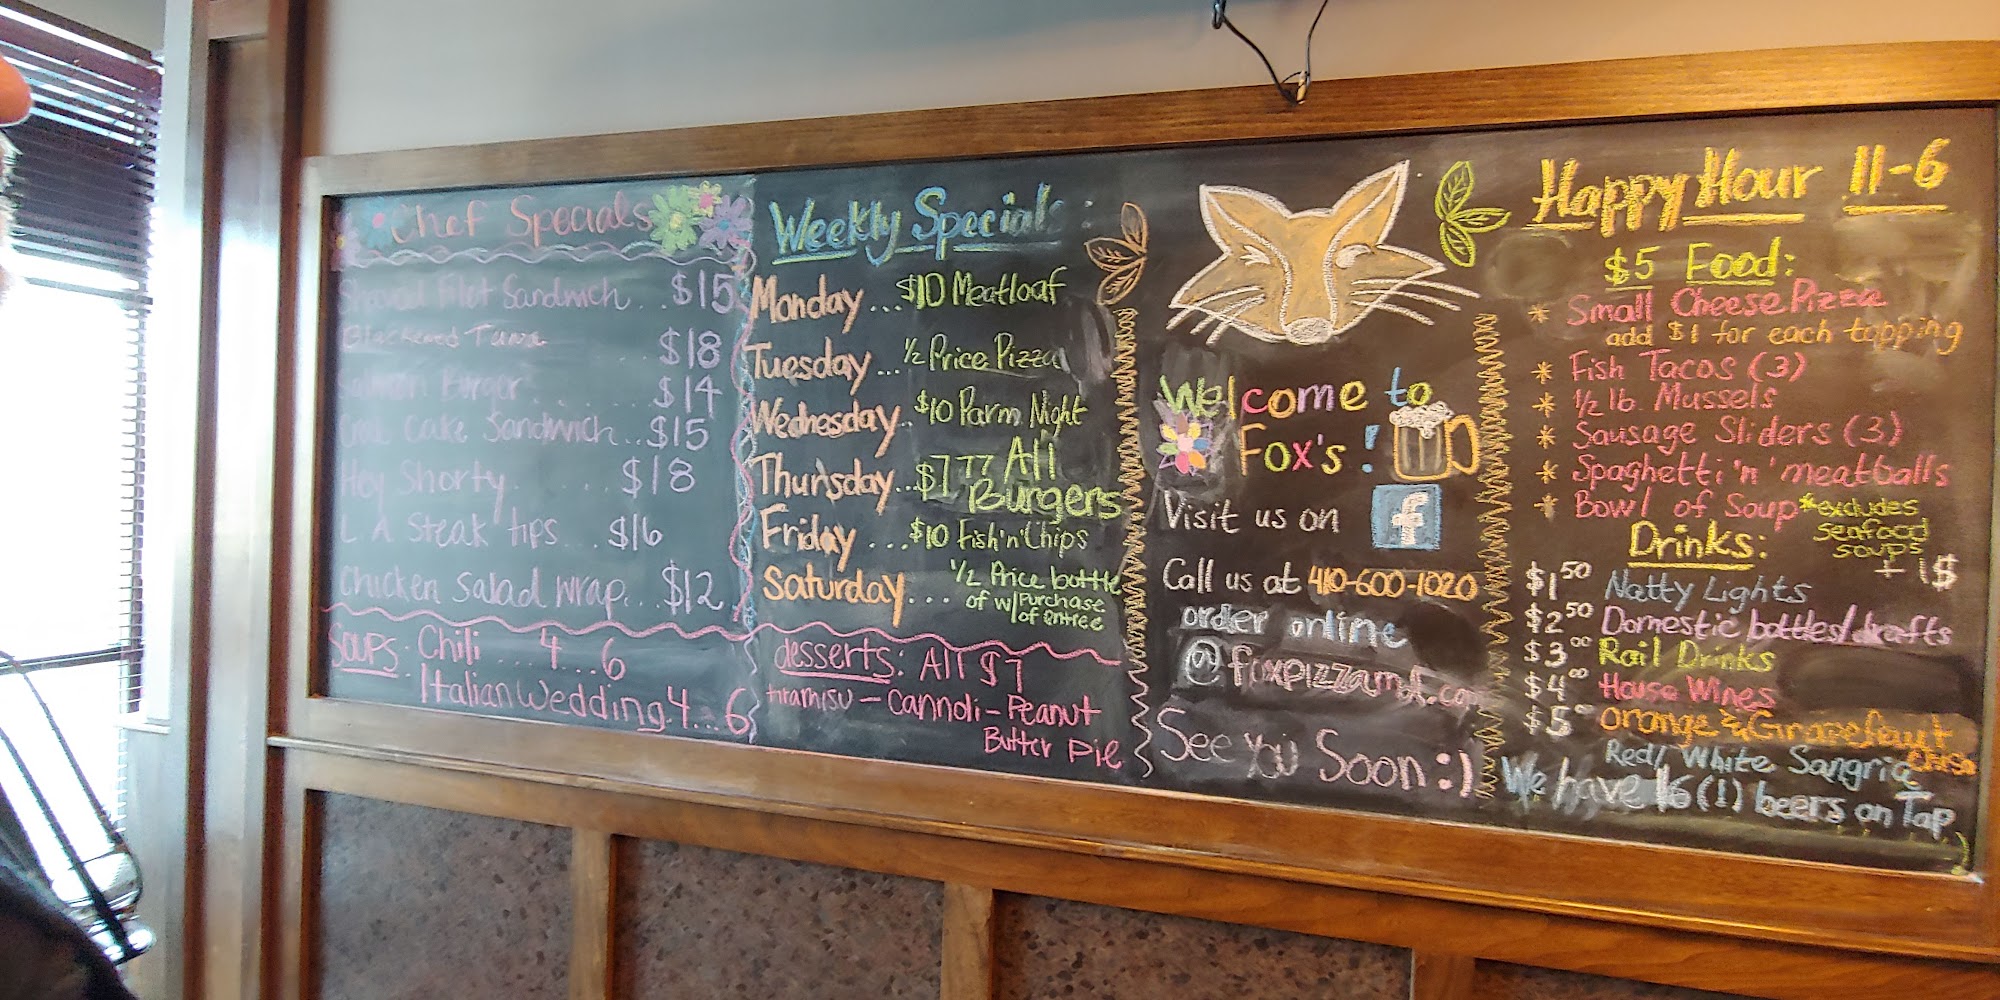 Chef Specials
Shaved Filet Sandwich... $15
Blackened Tuna ... $18
Salmon Burger ..... $14
Crab Cake Sandwich.. $15
Hey Shorty..... $18
L.A Steak tips... $16
Chicken Salad Wrap... $12
Soups: Chili ....4...6
Italian Wedding.4...6
Weekly Specials:
Monday... $10 Meatloaf
Tuesday... 1/2 Price Pizza
Wednesday.. $10 Parm Night
Thursday... $7.77 All
Burgers
Friday ... $10 Fish 'n' Chips
Saturday... 1/2 Price bottle
of w/ Purchase
of entree
desserts: All $7
tiramisu - Cannoli - Peanut
Butter Pie
Welcome to
Fox's!
Visit us on f
Call us at 410-600-1020
order online
@foxpizzamd.com
See you Soon :)
Happy Hour 11-6
$5 Food:
* Small Cheese Pizza
add $1 for each topping
* Fish Tacos (3)
* 1/2 lb. Mussels
* Sausage Sliders (3)
* Spaghetti 'n' meatballs
* Bowl of Soup *excludes
seafood
soups
+ 1$
Drinks:
$1.50 Natty Lights
$2.50 Domestic bottles/drafts
$3.00 Rail Drinks
$4.00 House Wines
$5.00 Orange & Grapefruit
Crush
Red/White Sangria
We have 16(!) beers on Tap